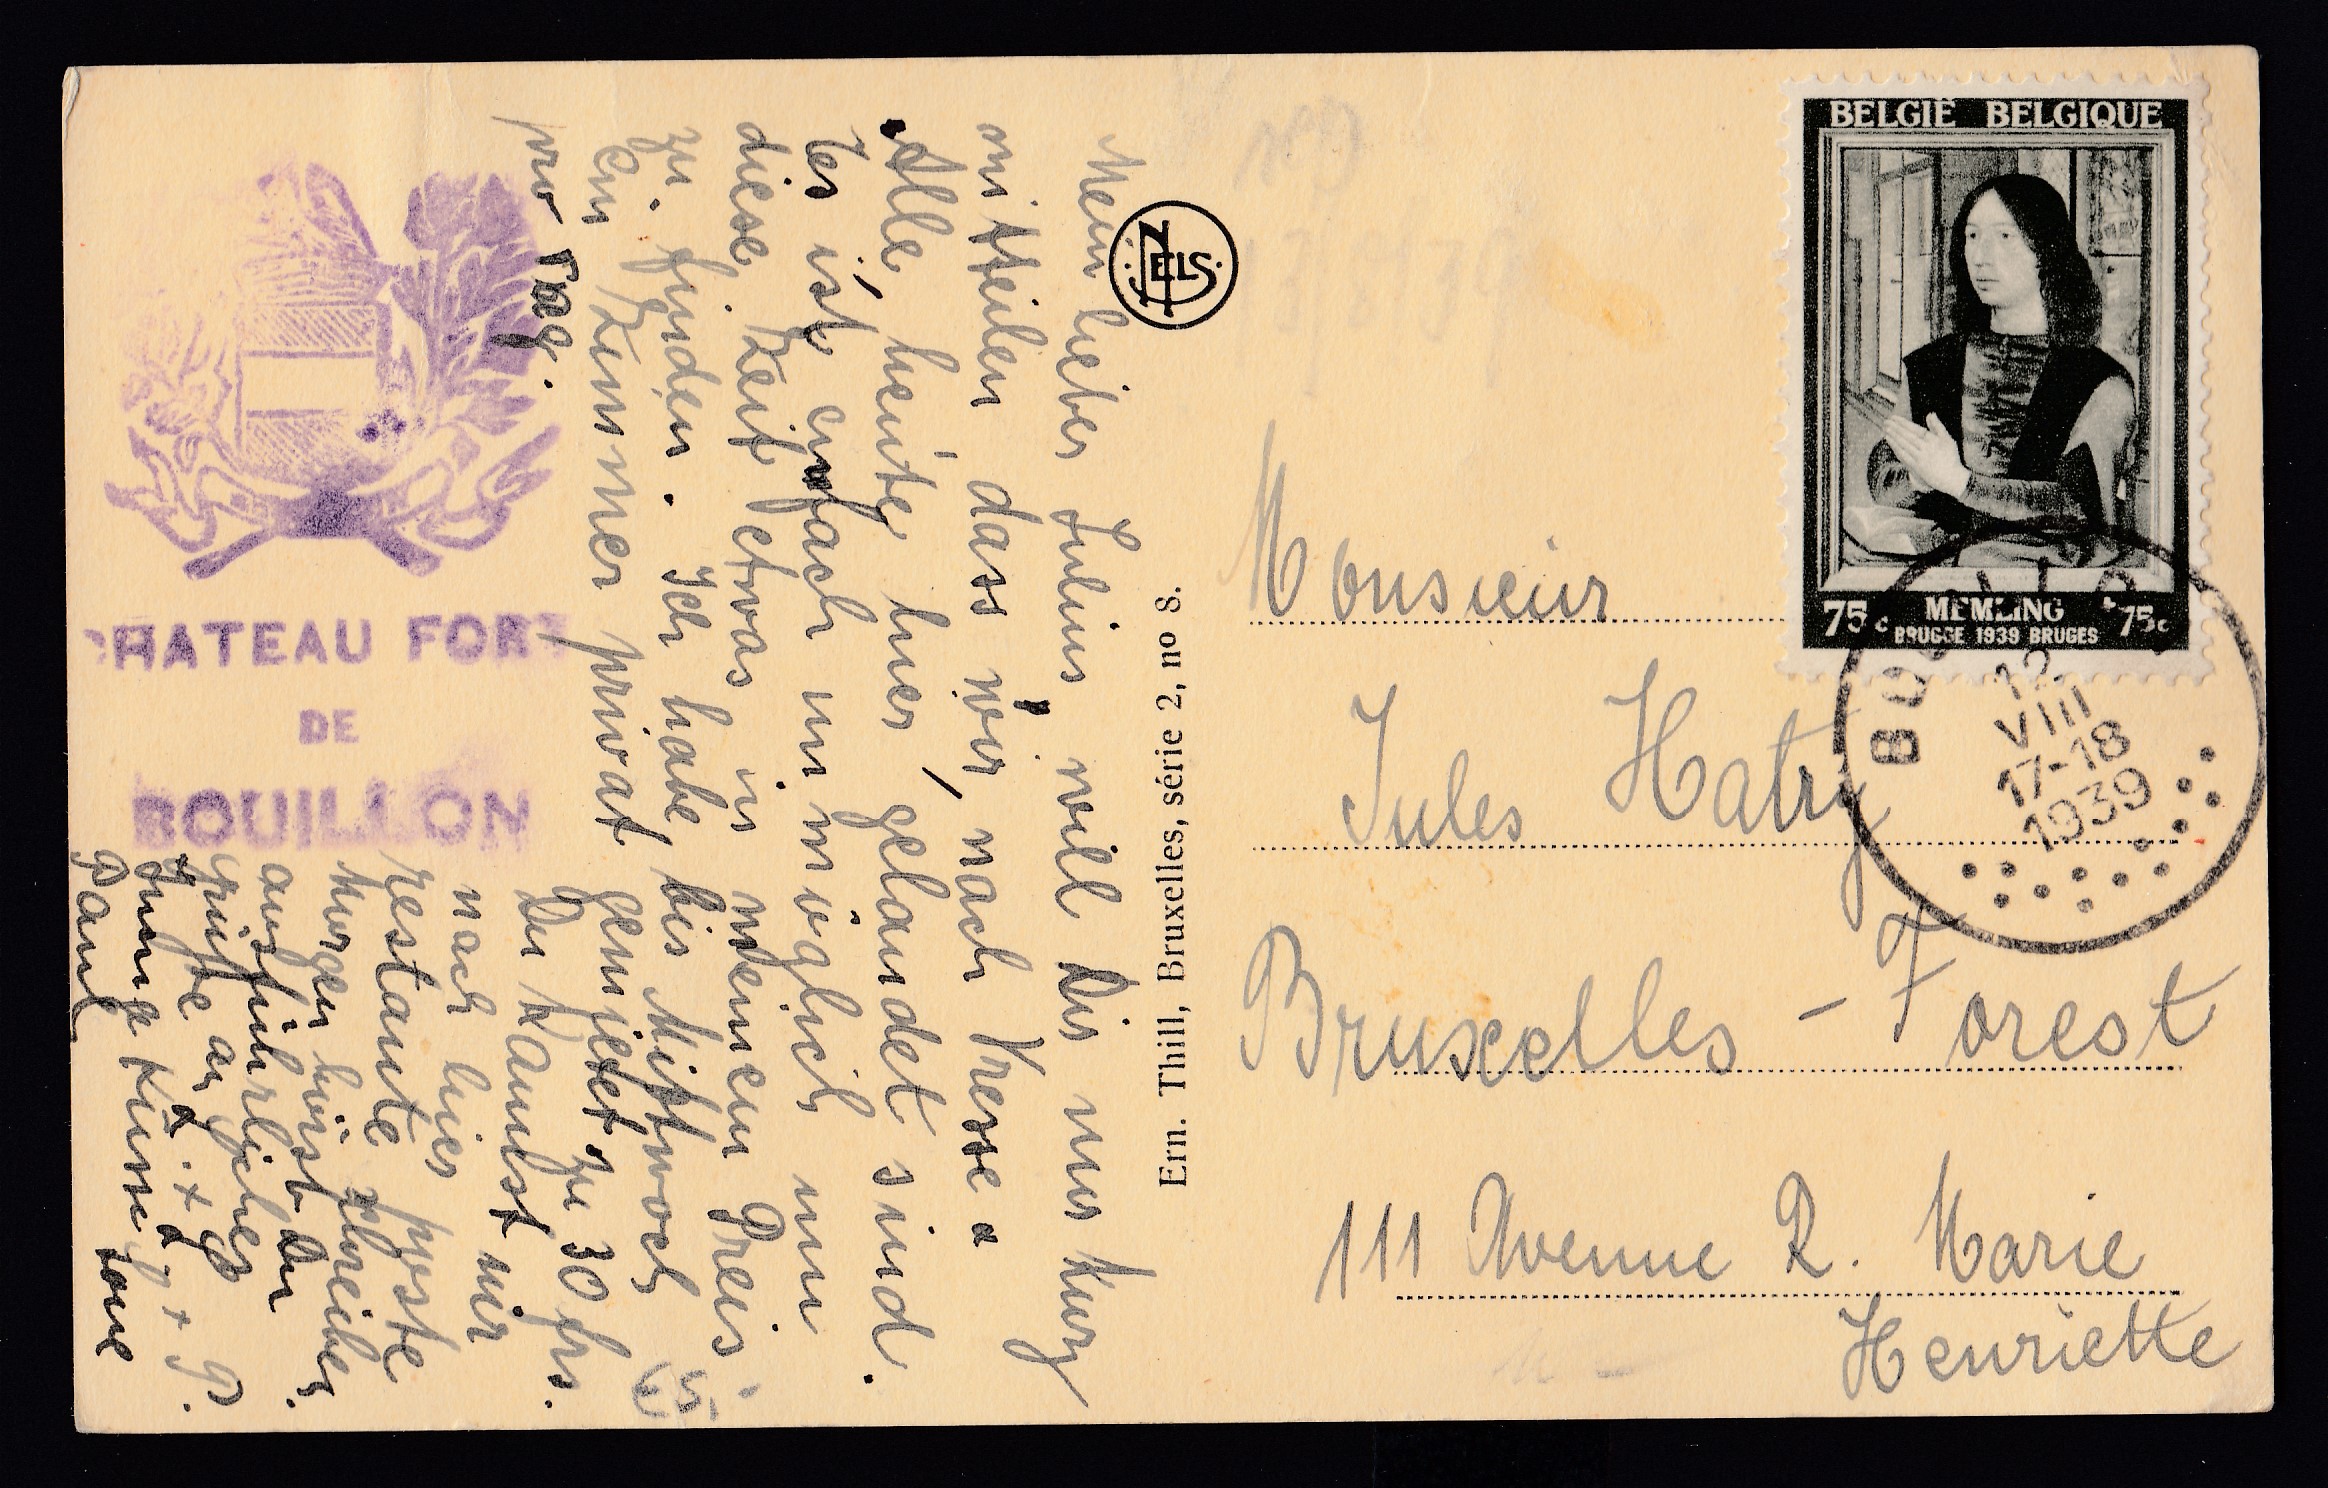 Mein lieber Julius will Dir nur kurz
mitteilen dass wir, nach Kresse
Alle, heute hier, gelandet sind.
Es ist einfach unmöglich um
diese Zeit etwas in meinem Preis
zu finden. Ich habe bis Mittwoch
ein Zimmer privat gemietet zu 30 frs.
pro Tag.
Du kannst mir
nach hier poste
restante schreiben.
Morgen hörst Du
ausführlicher
Grüsse an
Paul
CHATEAU FORT
DE
BOUILLON
NELS
Ern. Thill, Bruxelles, série 2, no 8.
BELGIË BELGIQUE
75c MEMLING 75c
BRUGGE 1939 BRUGES
12
VIII
17-18
1939
Monsieur
Jules Hatry
Bruxelles - Forest
111 Avenue R. Marie
Henriette